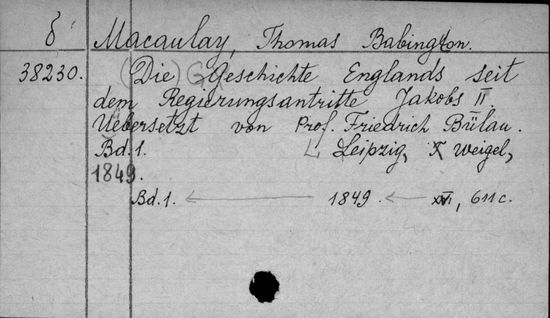 δ Macaulay, Thomas Babington.
38230. (Die) Geschichte Englands seit
dem Regierungsantritte Jakobs II.
Uebersetzt von Prof. Friedrich Bülau.
Bd. 1. Leipzig, Weigel,
1849.
Bd. 1. ← 1849. ← XVI, 611 c.